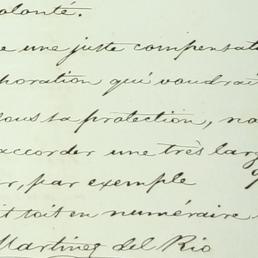 olonté.
e une juste compensat
horation qui voudrait
sous sa protection, no
accorder une très larg
r, par exemple
it soit en numéraire
Martinez del Rio